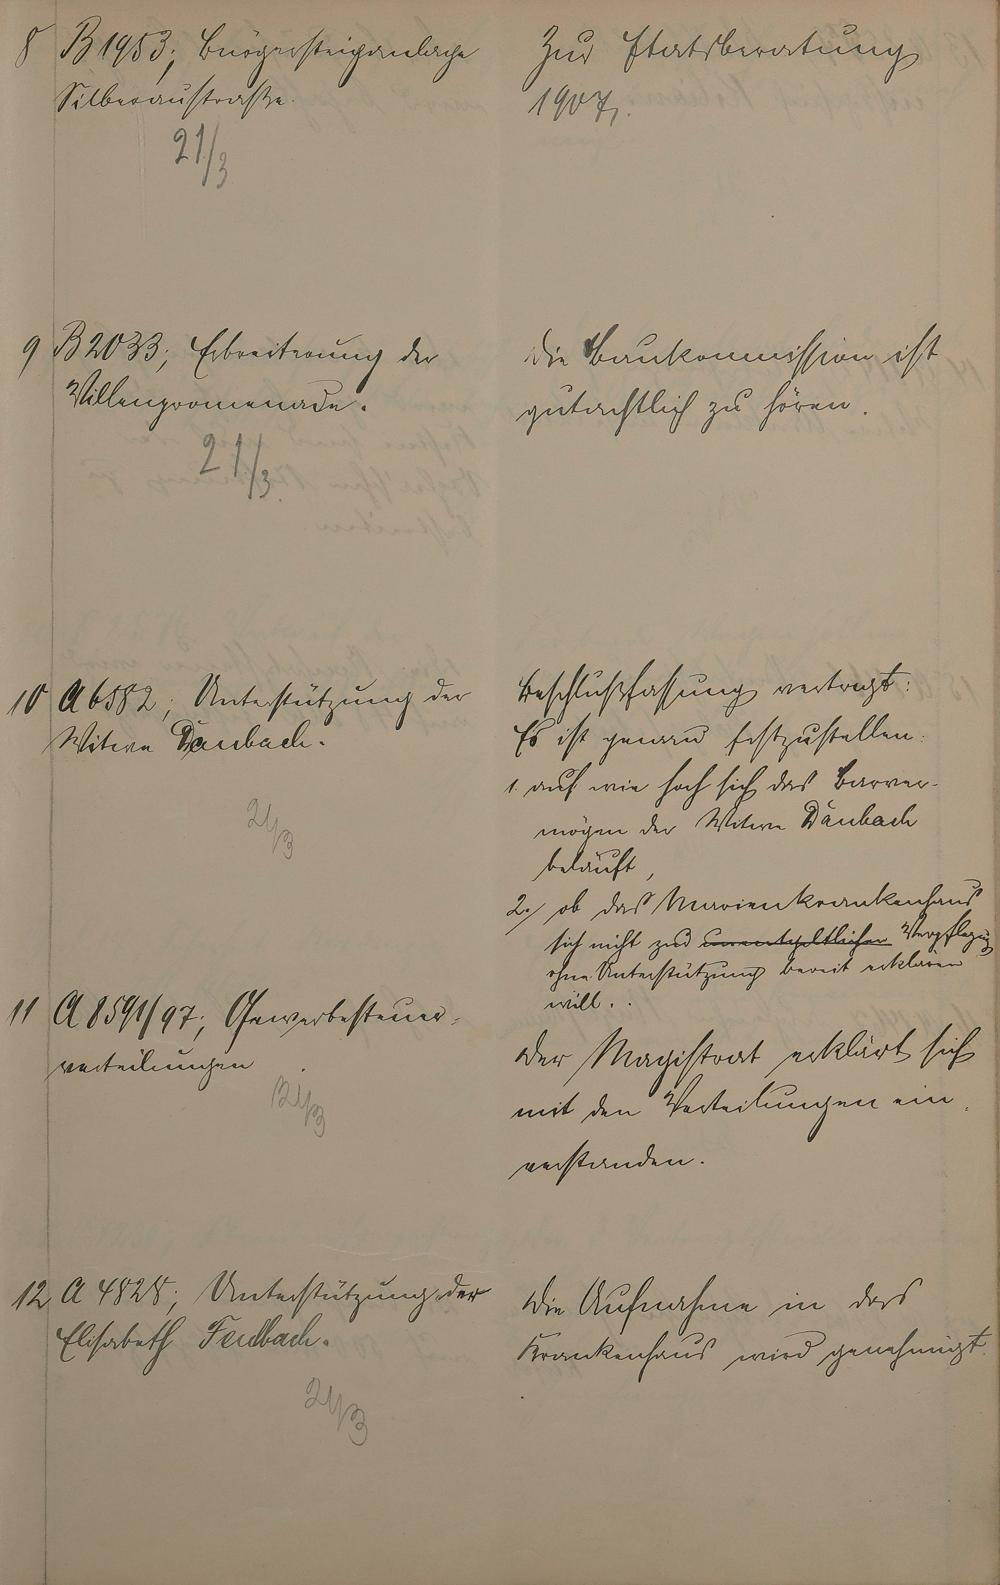 8 B 1953; Bürgersteiganlage
Silberaustraße.
21/3
Zur Etatsberatung
1907.
9 B 2033; Erbreiterung der
Villenpromenade.
21/3
Die Baukommission ist
gutachtlich zu hören.
10 A 6582; Unterstützung der
Witwe Däubach.
21/3
Beschlußfassung vertagt:
Es ist genau festzustellen:
1. auf wie hoch sich das Barver-
mögen der Witwe Däubach
beläuft,
2./ ob das Marienkrankenhaus
sich nicht zur unentgeltlichen Verpflegung
ohne Unterstützung bereit erklären
will.
11 A 8591/97; Gewerbesteuer-
verteilungen
21/3
Der Magistrat erklärt sich
mit den Verteilungen ein-
verstanden.
12 A 4828; Unterstützung der
Elisabeth
21/3
Die Aufnahme in das
Krankenhaus wird genehmigt.